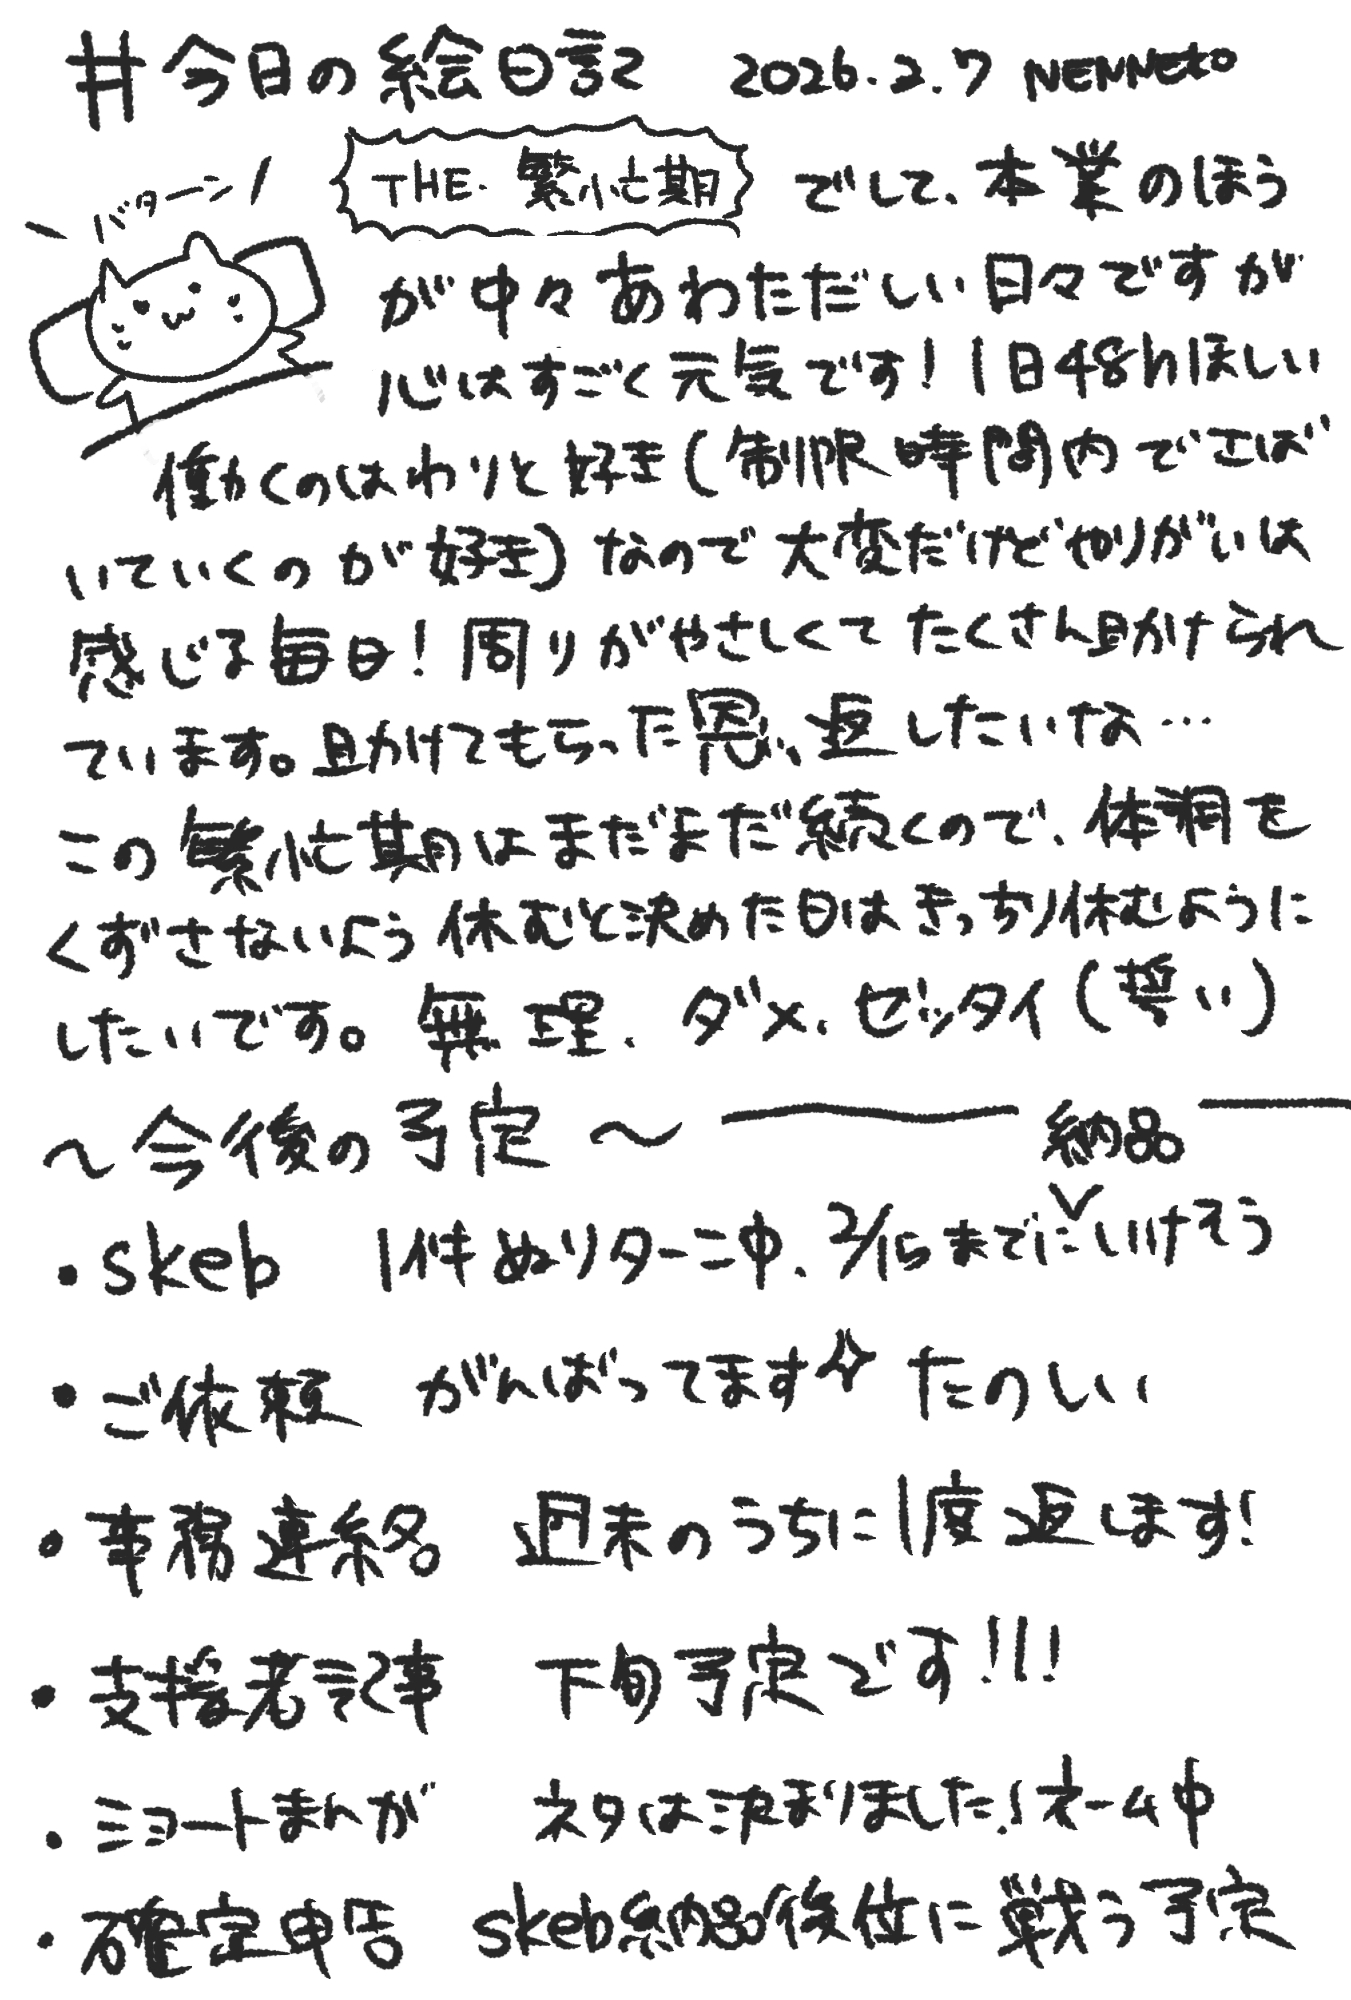 #今日の絵日記 2026.2.7 NENNEKO
バターン!
THE. 繁忙期 でして、本業のほう
が中々あわただしい日々ですが
心はすごく元気です!1日48hほしい
働くのはわりと好き(制限時間内でさば
いていくのが好き)なので大変だけどやりがいは
感じる毎日!周りがやさしくてたくさん助けられ
ています。助けてもらった恩、返したいな…
この繁忙期はまだまだ続くので、体調を
くずさないよう休むと決めた日はきっちり休むように
したいです。無理、ダメ、ゼッタイ(誓い)
〜今後の予定〜
納品
・skeb 1件ぬりターン中、2/15までにいけそう
・ご依頼 がんばってます✧ たのしい
・事務連絡 週末のうちに1度返します!
・支援者記事 下旬予定です!!!
・ショートまんが ネタは決まりました!ネーム中
・確定申告 skeb納品後位に戦う予定